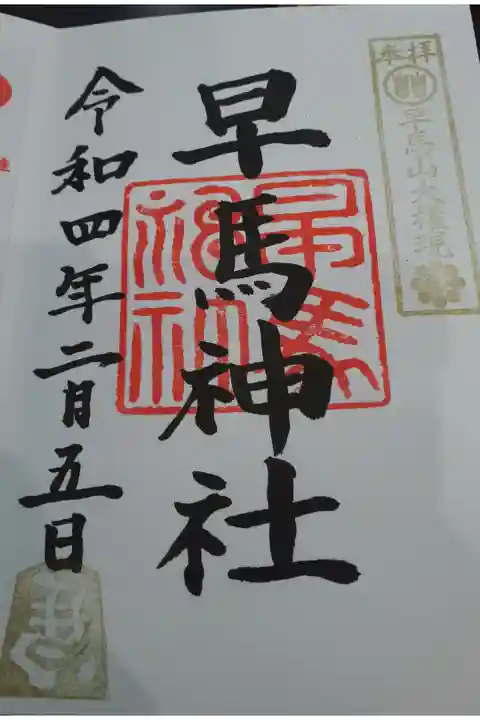 奉拝
早馬山大権現
早馬神社
早馬神社
令和四年二月五日